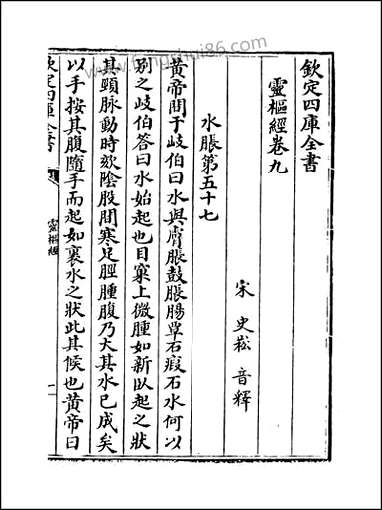 欽定四庫全書
靈樞經卷九
宋 史崧 音釋
水脹第五十七
黄帝問于岐伯曰水與膚脹鼓脹腸覃石瘕石水何以
别之岐伯答曰水始起也目窠上微腫如新臥起之狀
其頸脉動時欬陰股間寒足脛腫腹乃大其水已成矣
以手按其腹隨手而起如裹水之狀此其候也黄帝曰
欽定四庫全書
靈樞經
一